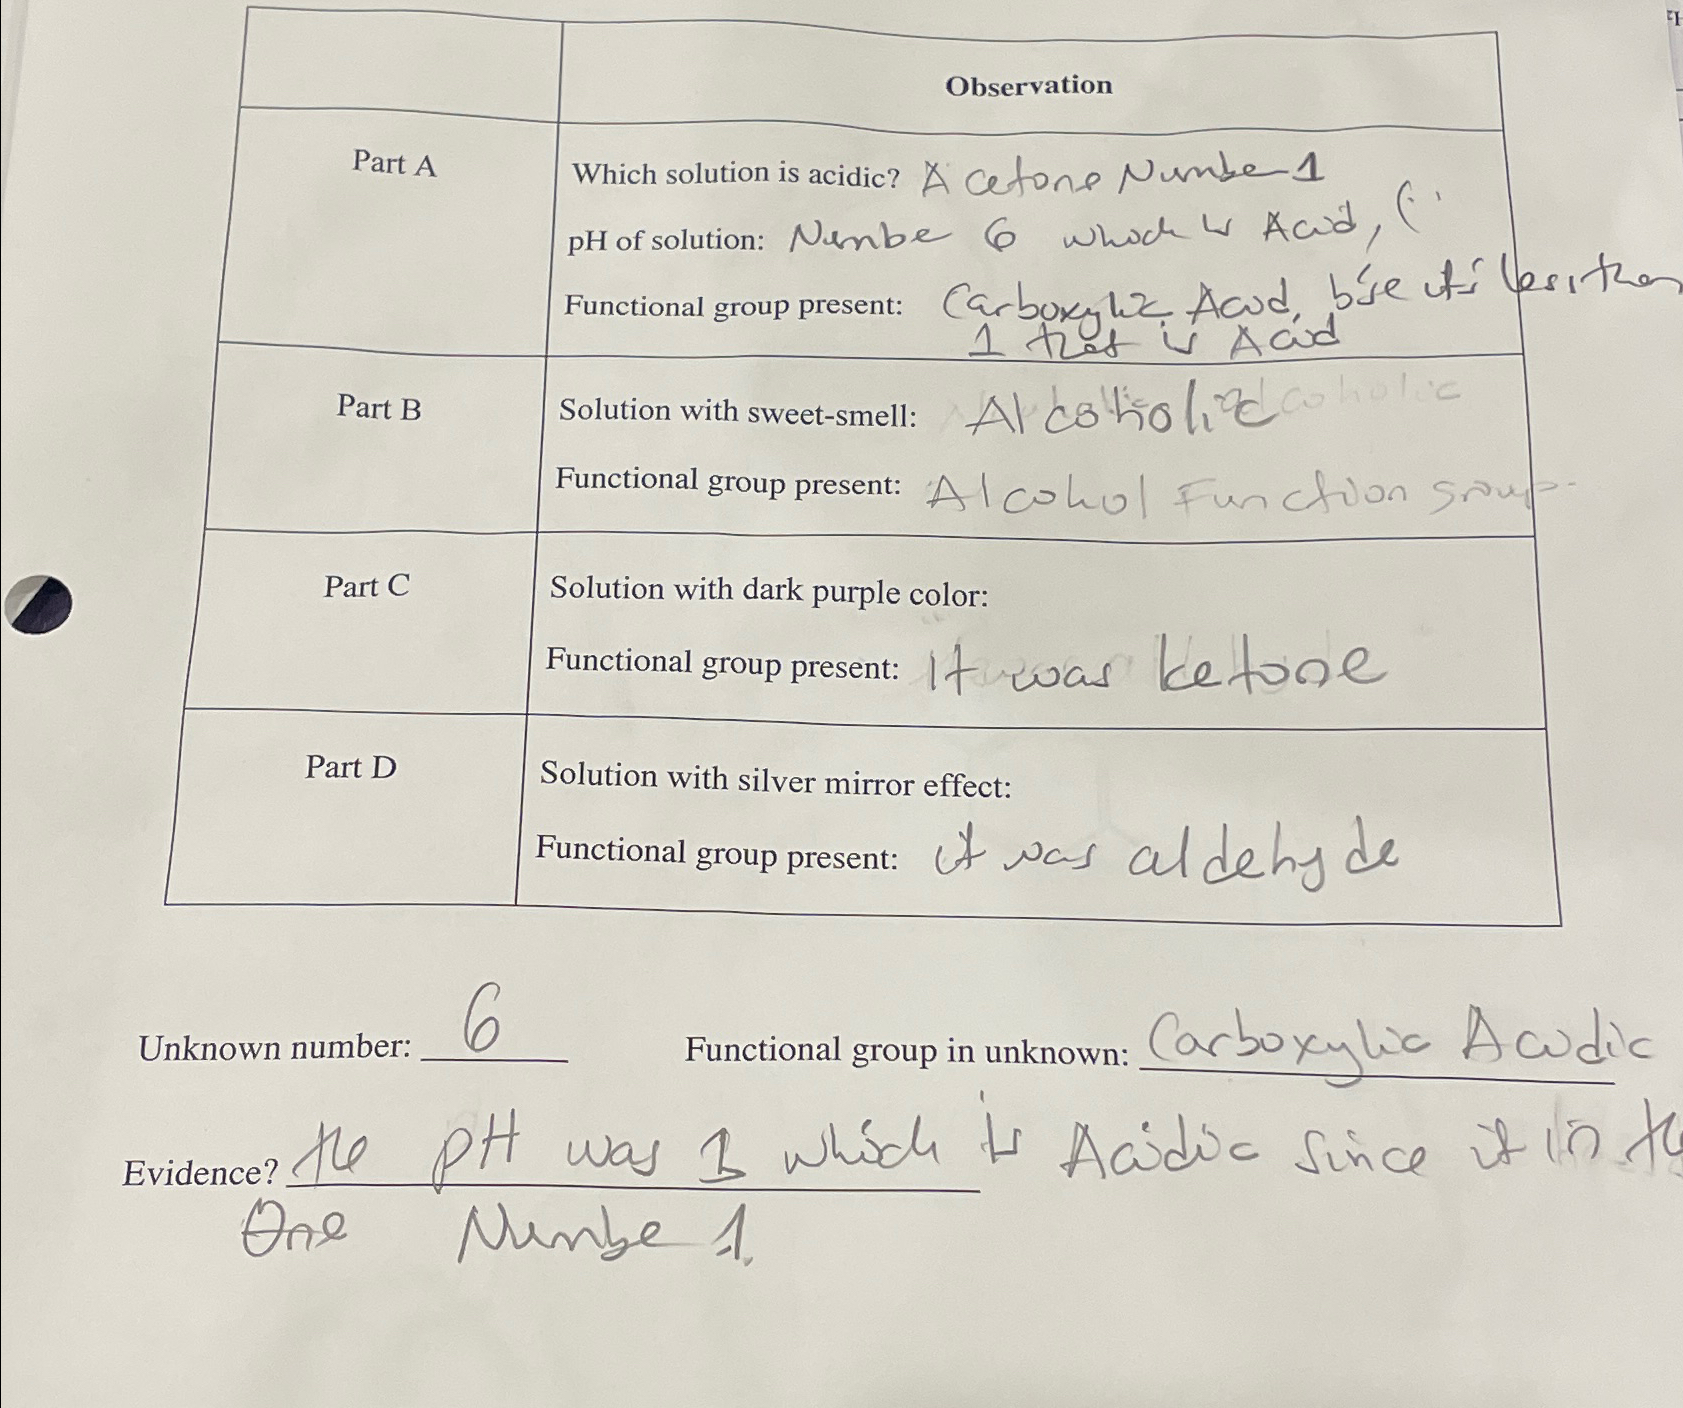 Observation
Part A
Which solution is acidic? Acetone Number 1
pH of solution: Numbe 6 which is Acid,
Functional group present: Carboxylic Acid, b'se it's less than
1 that is Acid
Part B
Solution with sweet-smell: Alcoholic
Functional group present: Alcohol Function group.
Part C
Solution with dark purple color:
Functional group present: It was ketone
Part D
Solution with silver mirror effect:
Functional group present: it was aldehyde
Unknown number: 6 Functional group in unknown: Carboxylic Acidic
Evidence? the pH was 1 which is Acidic since it in the
One Numbe 1.